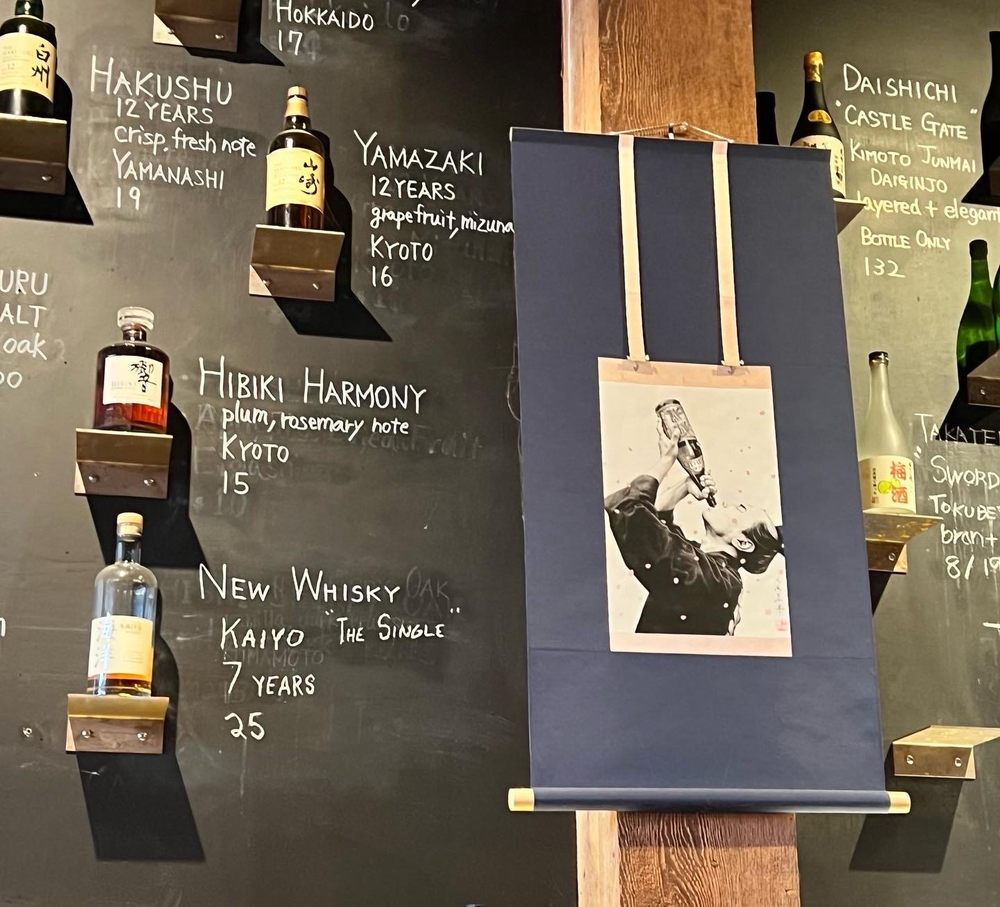 HOKKAIDO
17
HAKUSHU
12 YEARS
crisp, fresh note
YAMANASHI
19
白州
YAMAZAKI
12 YEARS
grapefruit, mizuna
KYOTO
16
山崎
URU
ALT
oak
HIBIKI HARMONY
plum, rosemary note
KYOTO
15
響
NEW WHISKY
KAIYO "THE SINGLE"
7 YEARS
25
海洋
KAIYO
DAISHICHI
"CASTLE GATE"
KIMOTO JUNMAI
DAIGINJO
layered + elegan
BOTTLE ONLY
132
梅酒
TAKATE
"SWORD
TOKUBE
bran+
8/19